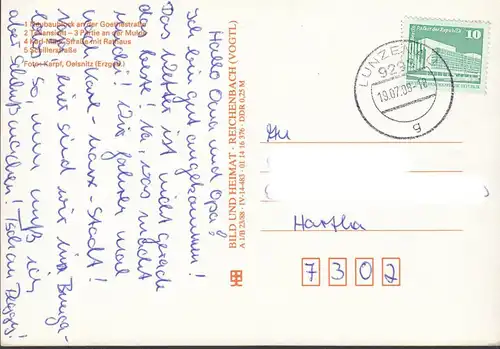 1 Neubaublock an der Goethestraße
2 Talansicht – 3 Partie an der Mulde
4 Karl-Marx-Straße mit Rathaus
5 Schillerstraße
Foto: Karpf, Oelsnitz (Erzgeb.)
Hallo Oma und Opa!
Ich bin gut angekommen!
Das Wetter ist nicht gerade
das beste! Na, was macht
ihr Die fahren mal
nach Karl-Marx-Stadt!
eine sind wir im Bunga-
So, nun muß ich
aber Schluß machen! Tschau Peggy!
BILD UND HEIMAT · REICHENBACH (VOGTL)
A 1/B 23/88 · IV-14-483 · 01 14 16 376 · DDR 0,25 M
Palast der Republik
10
DDR
LUNZENAU
929
19.07.89-18
g
An
Hartha
7302